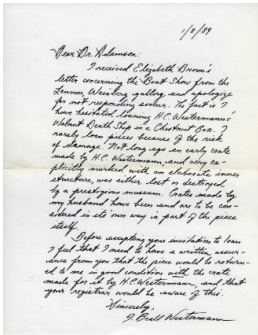 1/8/89
Dear Dr. Adamson
I received Elizabeth Brown's
letter concerning the Boat Show from the
Lennon, Weinberg gallery and apologize
for not responding sooner. The fact is I
have hesitated loaning H.C. Westermann's
Walnut Death Ship in a Chestnut Box. I
rarely loan pieces because of the risk
of damage. Not long ago an early crate
made by H.C. Westermann, and very ex-
plicitly marked with an elaborate inner
structure, was either lost or destroyed
by a prestigious museum. Crates made by
my husband have been and are to be con-
sidered in its own way a part of the piece
itself.
Before accepting your invitation to loan
I feel that I need to have a written assur-
ance from you that the piece would be return-
ed to me in good condition with the crate
made for it by H.C. Westermann, and that
your registrar would be aware of this.
Sincerely,
J. Beall Westermann